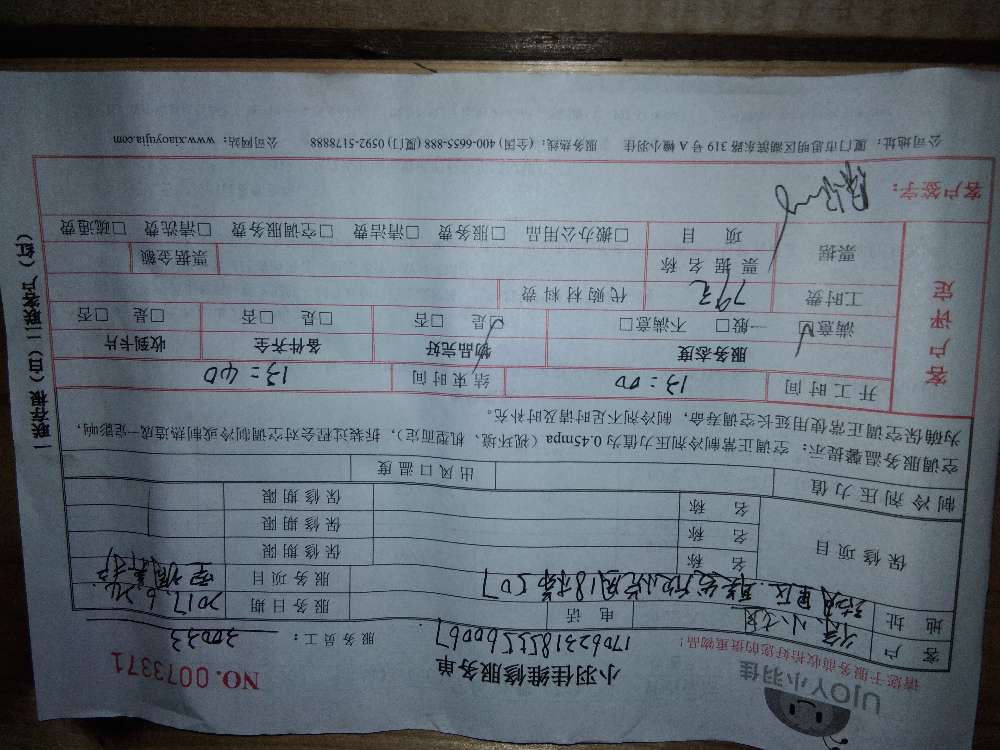 UJOY小羽佳
小羽佳维修服务单
NO. 0073371
请您于服务前收好拾好您的贵重物品!
17062318555600067
服务员工: 30033
客户
电话
服务日期 2017.6.24
地址
18 507
服务项目 空调养护
保修项目
名称 保修期限
名称 保修期限
名称 保修期限
制冷剂压力值 出风口温度
空调服务温馨提示: 空调正常制冷剂压力值为0.45mpa (视环境、机型而定), 拆装过程会对空调制冷或制热造成一定影响,
为确保空调正常使用延长空调寿命, 制冷剂不足时请及时补充。
客户评定
开工时间 13:00 结束时间 13:40
服务态度 物品完好 备件齐全 收到卡片
满意☑ 一般□ 不满意□ ☑是 □否 □是 □否 □是 □否
工时费 79元 代购材料费
票据 票据名称 票据金额
项目 □搬办公用品 □服务费 □清洁费 □空调服务费 □清洗费 □疏通费
客户签字:
公司地址: 厦门市思明区湖滨东路319号A幢小羽佳 服务热线: (全国) 400-6655-888 (厦门) 0592-5178888 公司网站: www.xiaoyujia.com
一联存根 (白) 二联客户 (红)